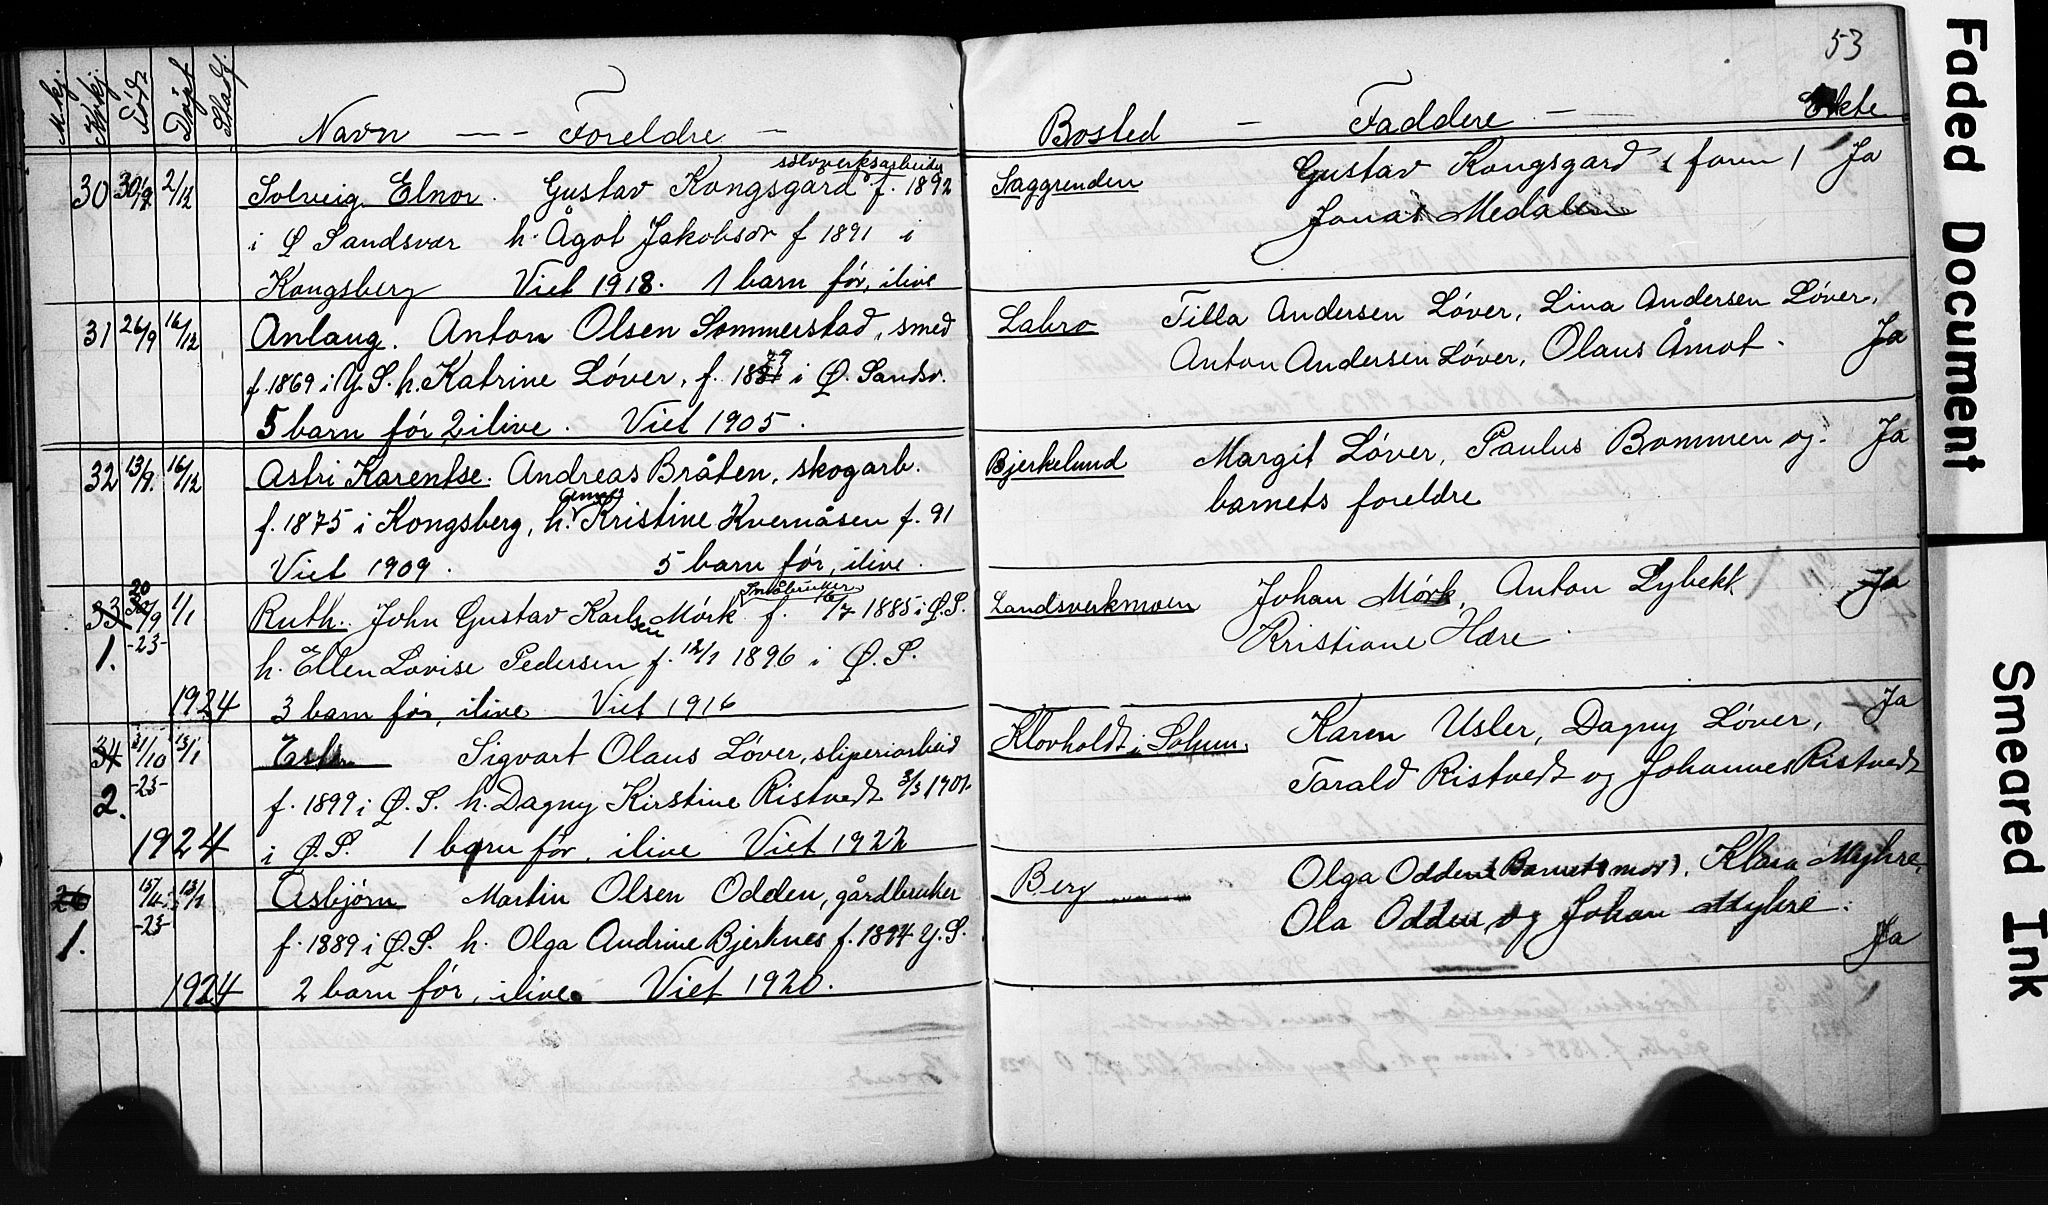 53
M. kj. Kvkj. Född Döpt Stadf.
Navn — - Foreldre —
Bosted - Faddere — Ekte
sölvverksarbeider
30 30/9 2/12 Solveig Elnor. Gustav Kongsgård f. 1892
i Ø Sandsvær h. Ågot Jakobsdr f 1891 i
Kongsberg Viet 1918. 1 barn før, ilive
Saggrenden Gustav Kongsgard (faren) Ja
Jonas Medalen
31 26/9 16/12 Anlaug. Anton Olsen Sommerstad, smed
f. 1869 i Y. S. h. Katrine Løver, f. 1879 i Ø. Sandsv.
5 barn før, 2 ilive. Viet 1905.
Labro Tilla Andersen Løver, Lina Andersen Løver,
Anton Andersen Løver, Olaus Åmot. Ja
32 13/9. 16/12 Astri Karentse. Andreas Bråten, skogarb.
f. 1875 i Kongsberg, h. Kristine Kvernåsen f. 91
Viet 1909. 5 barn før, ilive.
Bjerkelund Margit Løver, Paulus Bommen og Ja
barnets foreldre
33 20/9 1/1 Ruth. John Gustav Karlsen Mørk f. 16/7 1885 i Ø. S.
1. -23- h. Ellen Lovise Pedersen f. 12/1 1896 i Ø. S.
1924 3 barn før, ilive Viet 1916
Landsverkmoen Johan Mørk, Anton Lybekk Ja
Kristiane Hære.
34 31/10 13/1 Sigvart Olaus Løver, sliperiarbeid
2. -23- f. 1899 i Ø. S. h. Dagny Kirstine Ristvedt 3/3 1901
1924 i Ø. S. 1 barn før, ilive Viet 1922
Klovholdt i Sohun. Karen Usler, Dagny Løver, Ja
Tarald Ristvedt og Johannes Ristvedt
13/1 Asbjørn Martin Olsen Odden, gårdbruker
1. -23- f. 1889 i Ø. S. h. Olga Andrine Bjerknes f. 1894 Y. S.
1924 2 barn før, ilive. Viet 1920.
Berg Olga Odden (Barnets mor), Klara Myhre,
Ola Odden og Johan Myhre. Ja
Faded Document
Smeared Ink